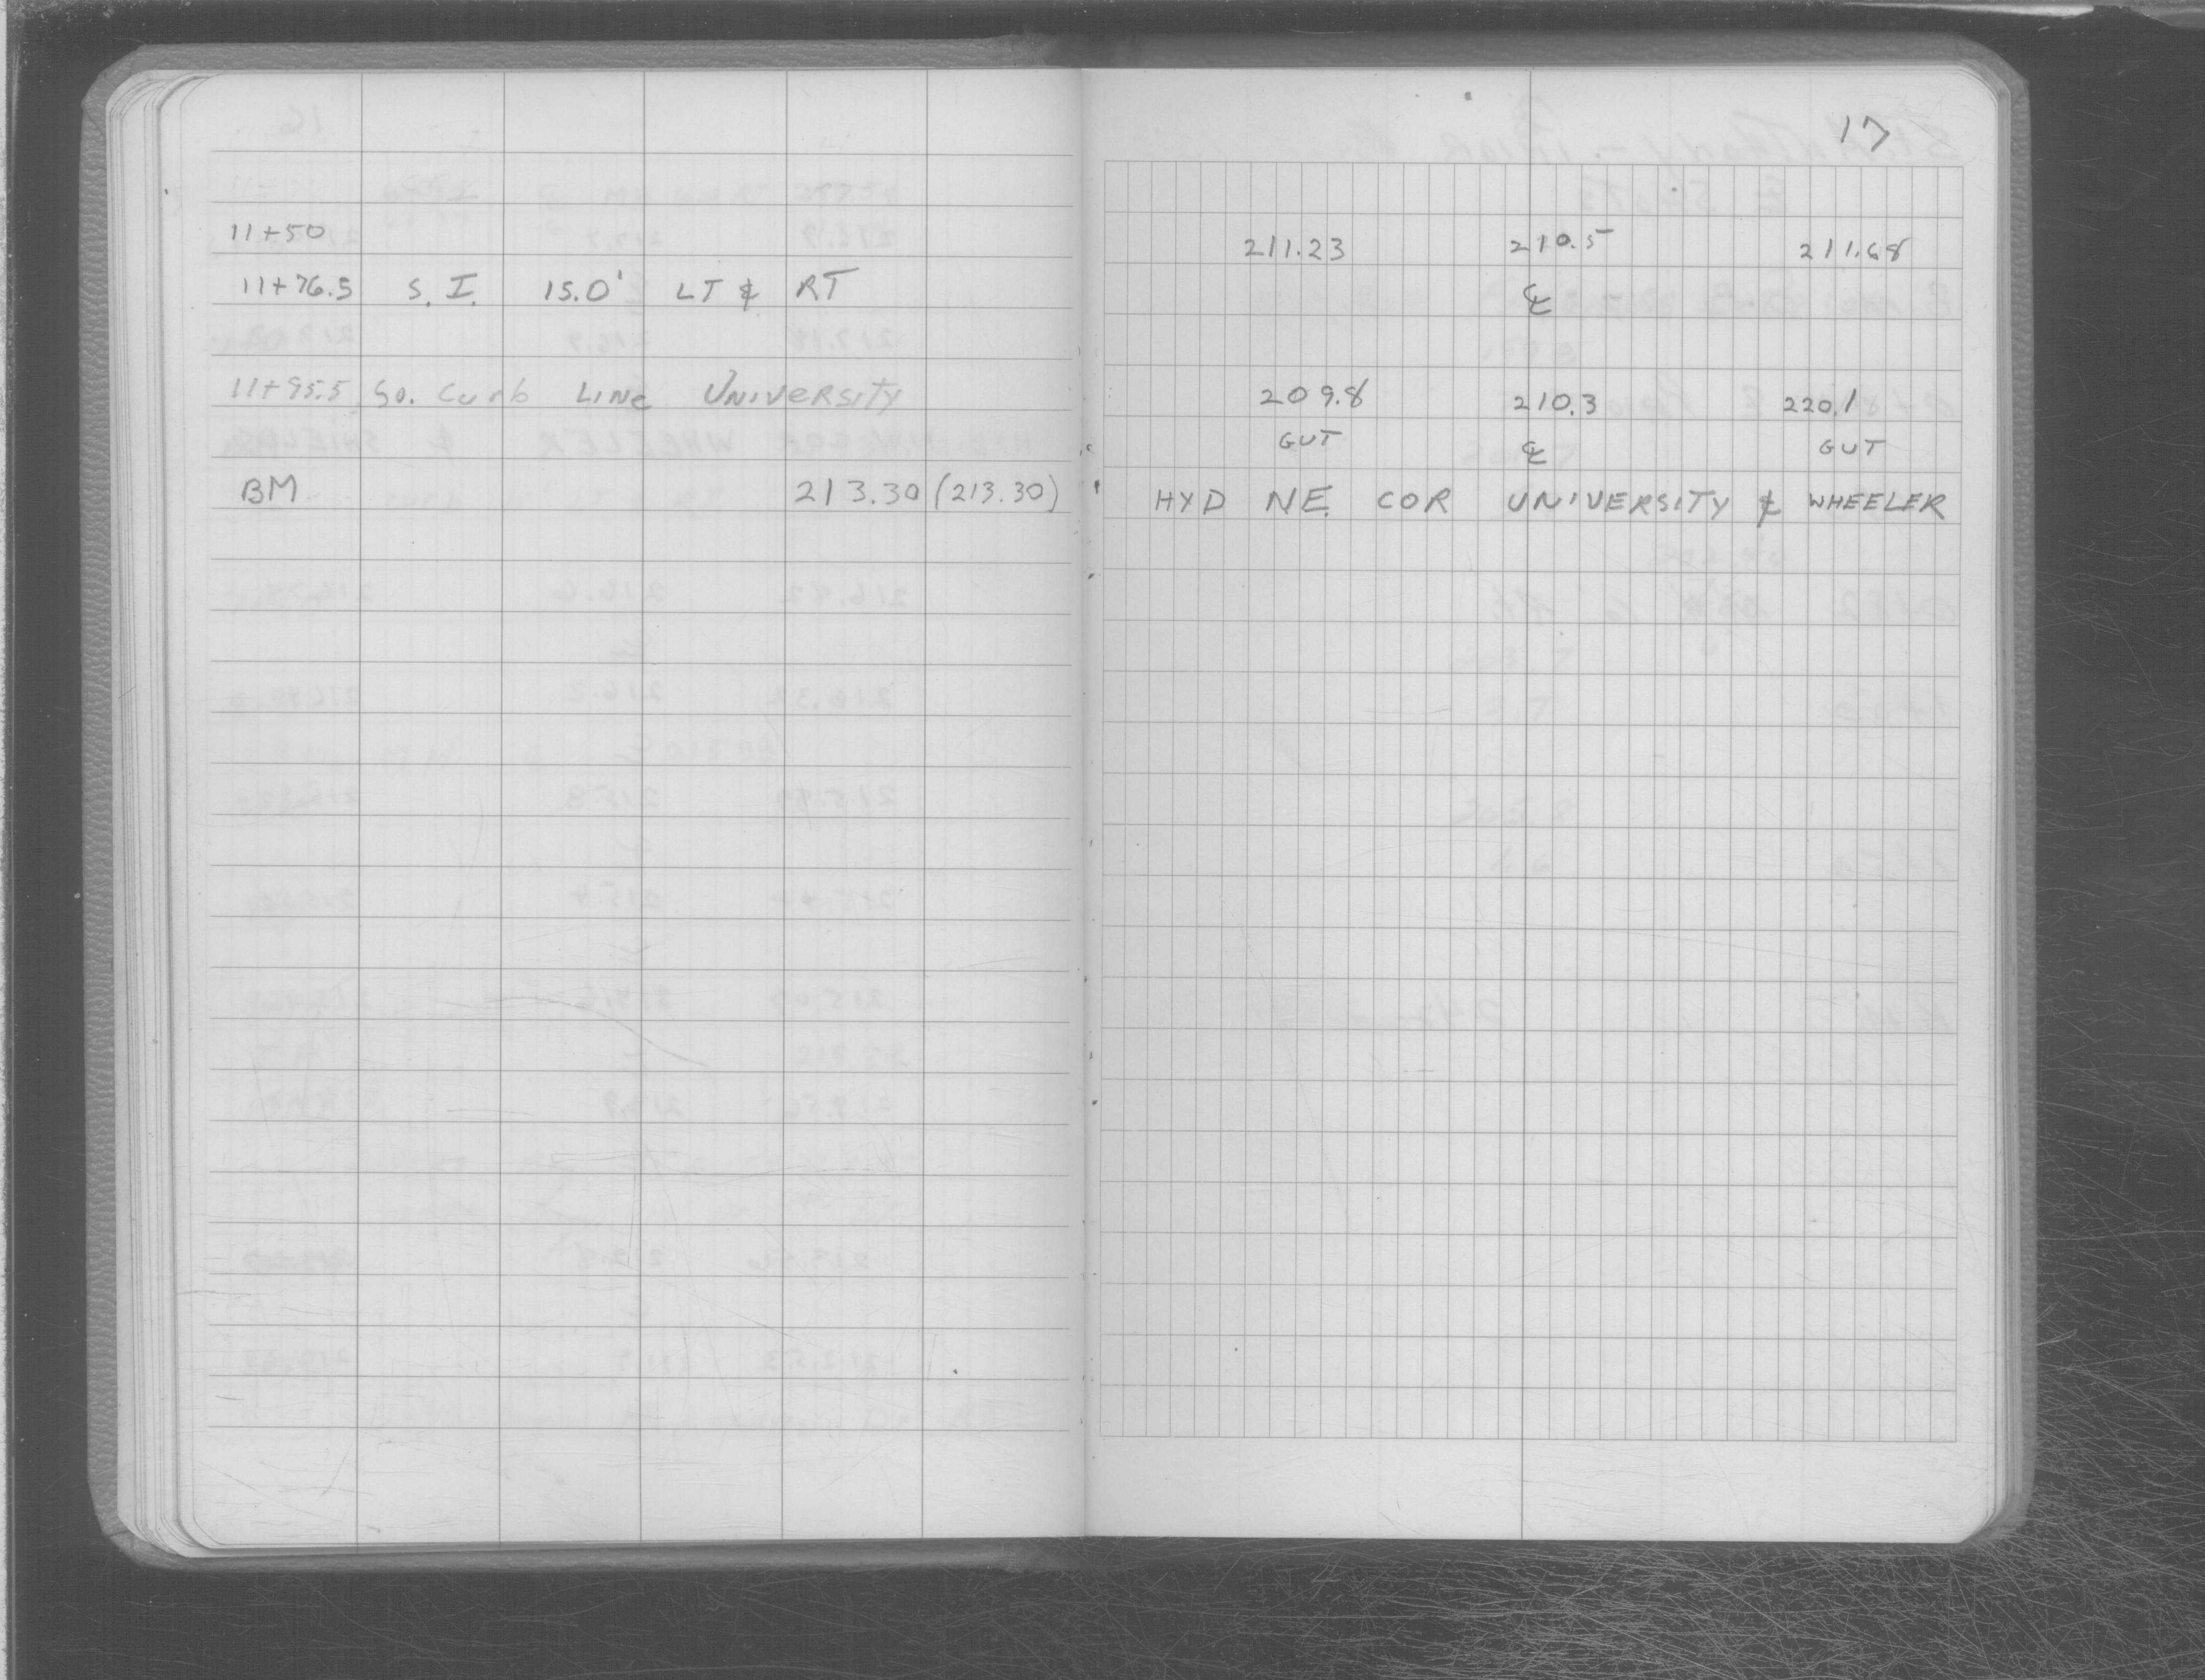 17
11+50 211.23 210.5 211.68
11+76.5 S. I. 15.0' LT & RT ℄
11+95.5 So. Curb LINE UNIVERSITY 209.8 210.3 220.1
GUT ℄ GUT
BM 213.30 (213.30) HYD NE. COR UNIVERSITY & WHEELER